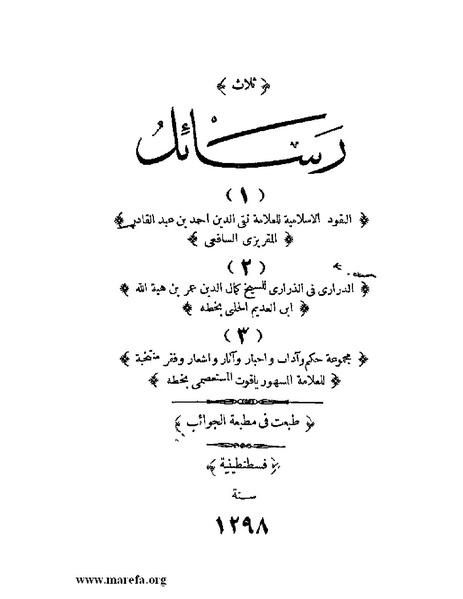 ﴿ ثلاث ﴾
رَسَائِلُ
( ١ )
﴿ النقود الاسلامية للعلامة تقى الدين احمد بن عبد القادر ﴾
﴿ المقريزى الشافعى ﴾
( ٢ )
﴿ الدرارى فى الذرارى للشيخ كمال الدين عمر بن هبة الله ﴾
﴿ ابن العديم الحلبى بخطه ﴾
( ٣ )
﴿ مجموعة حكم وآداب واخبار وآثار واشعار وفقر منتخبة ﴾
﴿ للعلامة المشهور ياقوت المستعصمى بخطه ﴾
﴿ طبعت فى مطبعة الجوائب ﴾
﴿ قسطنطينية ﴾
سنة
١٢٩٨
www.marefa.org